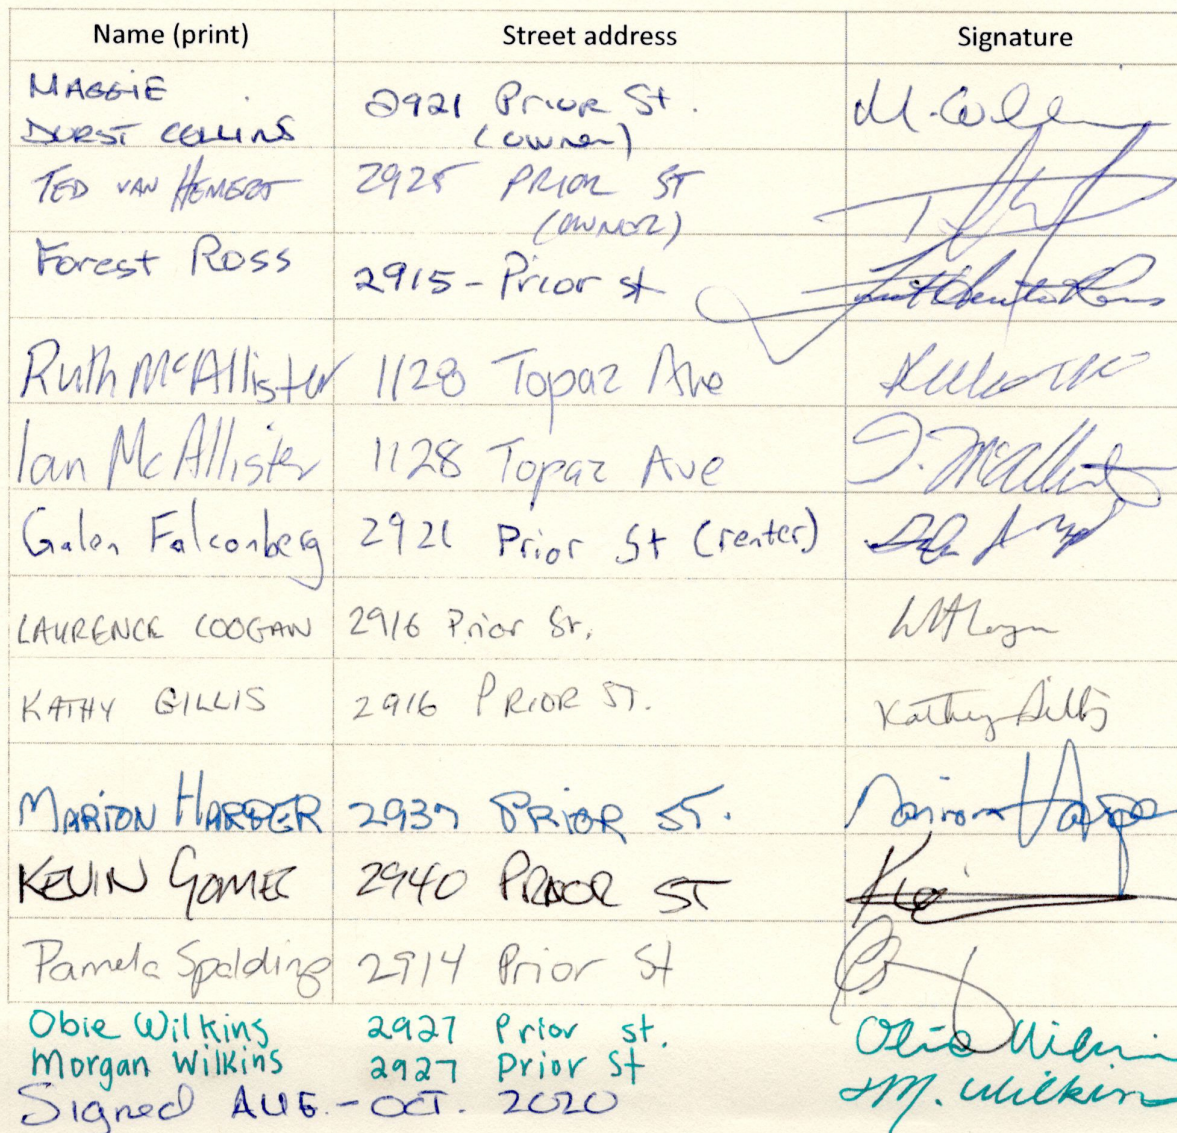 Name (print) Street address Signature
MAGGIE
DURST COLLINS 2921 PRIOR St.
(owner) M. Coll
TED VAN HEMERT 2925 PRIOR ST
(OWNOR)
Forest Ross 2915 - Prior st
Ruth McAllister 1128 Topaz Ave
Ian McAllister 1128 Topaz Ave I. McAllister
Galen Falconberg 2921 Prior St (renter)
LAURENCE COOGAN 2916 Prior St.
KATHY GILLIS 2916 PRIOR ST. Kathy Gillis
MARION HARPER 2937 PRIOR ST. Marion Harper
KEVIN GOMEZ 2940 PRIOR ST
Pamela Spalding 2914 Prior St
Obie Wilkins 2927 Prior st. Obie Wilkin
Morgan Wilkins 2927 Prior St M. Wilkins
Signed AUG. - OCT. 2020